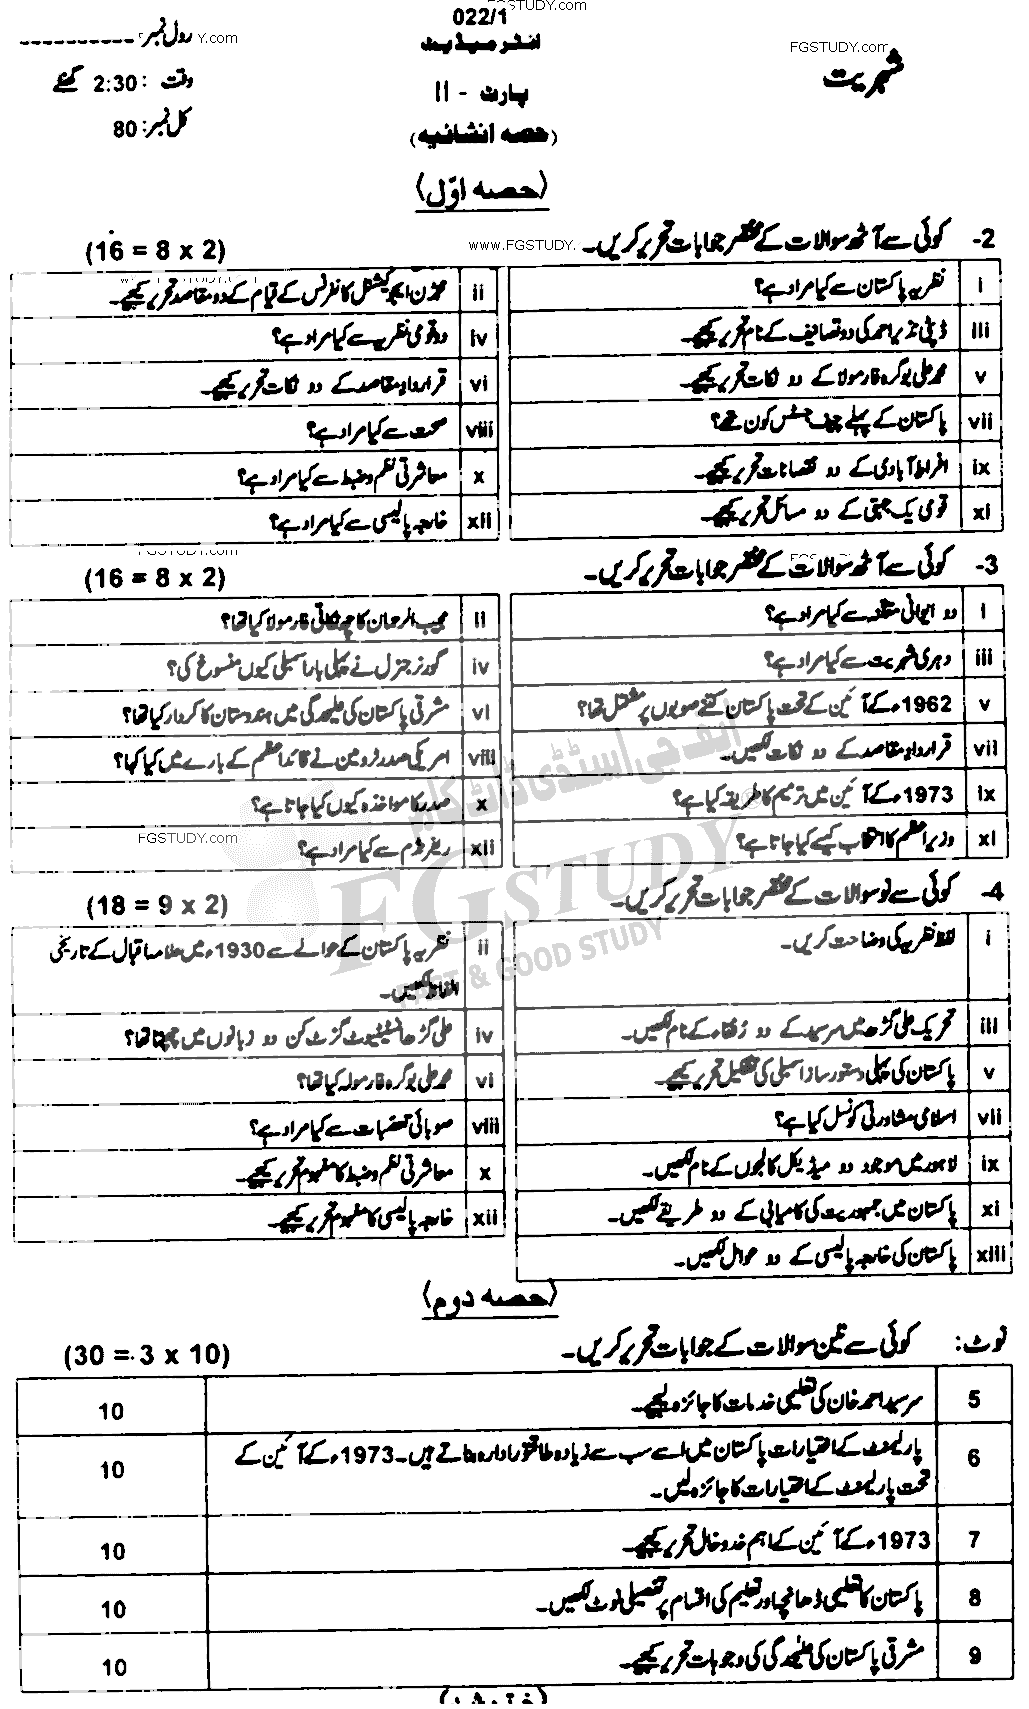 FGSTUDY.com
022/1
رول نمبر ----------
Y.com
انٹرمیڈیٹ
FGSTUDY.com
شہریت
وقت : 2:30 گھنٹے
پارٹ - II
کل نمبر: 80
(حصہ انشائیہ)
(حصہ اوّل)
2- کوئی سے آٹھ سوالات کے مختصر جوابات تحریر کریں۔ (16 = 8 x 2)
www.FGSTUDY.
i نظریہ پاکستان سے کیا مراد ہے؟
ii محمڈن ایجوکیشنل کانفرنس کے قیام کے دو مقاصد تحریر کیجیے۔
iii ڈپٹی نذیر احمد کی دو تصانیف کے نام تحریر کیجیے۔
iv دو قومی نظریہ سے کیا مراد ہے؟
v محمد علی بوگرہ فارمولا کے دو نکات تحریر کیجیے۔
vi قرارداد مقاصد کے دو نکات تحریر کیجیے۔
vii پاکستان کے پہلے چیف جسٹس کون تھے؟
viii صحت سے کیا مراد ہے؟
ix افراط آبادی کے دو نقصانات تحریر کیجیے۔
x معاشرتی نظم و ضبط سے کیا مراد ہے؟
xi قومی یک جہتی کے دو مسائل تحریر کیجیے۔
xii خارجہ پالیسی سے کیا مراد ہے؟
FGSTUDY.com
3- کوئی سے آٹھ سوالات کے مختصر جوابات تحریر کریں۔ (16 = 8 x 2)
i دو ایوانی مقننہ سے کیا مراد ہے؟
ii مجیب الرحمان کا چھ نکاتی فارمولا کیا تھا؟
iii دہری شہریت سے کیا مراد ہے؟
iv گورنر جنرل نے پہلی بار اسمبلی کیوں منسوخ کی؟
v 1962ء کے آئین کے تحت پاکستان کتنے صوبوں پر مشتمل تھا؟
vi مشرقی پاکستان کی علیحدگی میں ہندوستان کا کردار کیا تھا؟
vii قرارداد مقاصد کے دو نکات لکھیں۔
viii امریکی صدر ٹرومین نے قائداعظم کے بارے میں کیا کہا؟
ix 1973ء کے آئین میں ترمیم کا طریقہ کیا ہے؟
x صدر کا مواخذہ کیوں کیا جاتا ہے؟
xi وزیراعظم کا انتخاب کیسے کیا جاتا ہے؟
xii ریفرنڈم سے کیا مراد ہے؟
FGSTUDY.com
ایف جی اسٹڈی ڈاٹ کام
FGSTUDY
FAST & GOOD STUDY
4- کوئی سے نو سوالات کے مختصر جوابات تحریر کریں۔ (18 = 9 x 2)
i لفظ نظریہ کی وضاحت کریں۔
ii نظریہ پاکستان کے حوالے سے 1930ء میں علامہ اقبال کے تاریخی
الفاظ لکھیں۔
iii تحریک علی گڑھ میں سرسید کے دو رفقاء کے نام لکھیں۔
iv علی گڑھ انسٹیٹیوٹ گزٹ کن دو زبانوں میں چھپتا تھا؟
v پاکستان کی پہلی دستور ساز اسمبلی کی تشکیل تحریر کیجیے۔
vi محمد علی بوگرہ فارمولہ کیا تھا؟
vii اسلامی مشاورتی کونسل کیا ہے؟
viii صوبائی تعصبات سے کیا مراد ہے؟
ix لاہور میں موجود دو میڈیکل کالجوں کے نام لکھیں۔
x معاشرتی نظم و ضبط کا مفہوم تحریر کیجیے۔
xi پاکستان میں جمہوریت کی کامیابی کے دو طریقے لکھیں۔
xii خارجہ پالیسی کا مفہوم تحریر کیجیے۔
xiii پاکستان کی خارجہ پالیسی کے دو عوامل لکھیں۔
(حصہ دوم)
نوٹ: کوئی سے تین سوالات کے جوابات تحریر کریں۔ (30 = 3 x 10)
5 سرسید احمد خان کی تعلیمی خدمات کا جائزہ لیجیے۔ 10
6 پارلیمنٹ کے اختیارات پاکستان میں اسے سب سے زیادہ طاقتور ادارہ بناتے ہیں۔ 1973ء کے آئین کے
تحت پارلیمنٹ کے اختیارات کا جائزہ لیں۔ 10
7 1973ء کے آئین کے اہم خدوخال تحریر کیجیے۔ 10
8 پاکستان کا تعلیمی ڈھانچہ اور تعلیم کی اقسام پر تفصیلی نوٹ لکھیں۔ 10
9 مشرقی پاکستان کی علیحدگی کی وجوہات تحریر کیجیے۔ 10